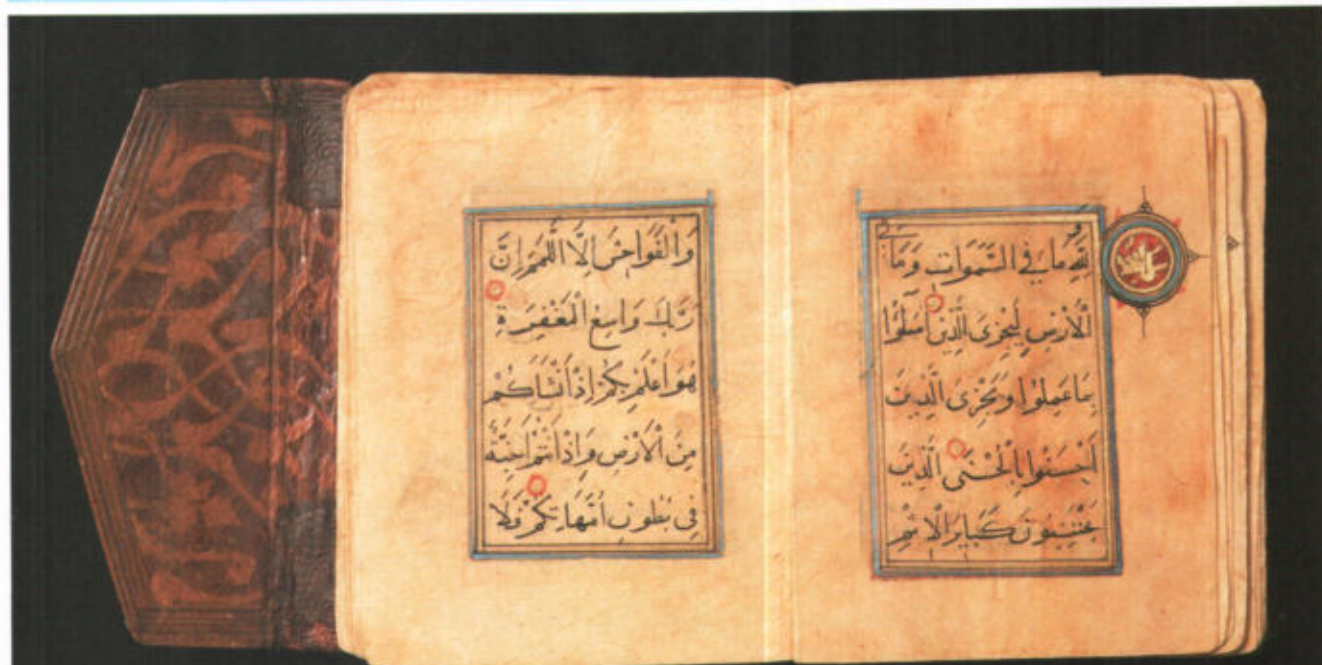 وَلِلّٰهِ مَا فِي السَّمَوَاتِ وَمَا فِي
الْأَرْضِ لِيَجْزِيَ الَّذِينَ اَسَآؤُا
بِمَا عَمِلُوا وَيَجْزِيَ الَّذِينَ
اَحْسَنُوا بِالْحُسْنَى الَّذِينَ
يَجْتَنِبُونَ كَبَايِرَ الْاِثْمِ
وَالْفَوَاحِشَ اِلَّا اللَّمَمَ اِنَّ
رَبَّكَ وَاسِعُ الْمَغْفِرَةِ
هُوَ اَعْلَمُ بِكُمْ اِذْ اَنْشَاَكُمْ
مِنَ الْاَرْضِ وَاِذْ اَنْتُمْ اَجِنَّةٌ
فِي بُطُونِ اُمَّهَاتِكُمْ فَلَا